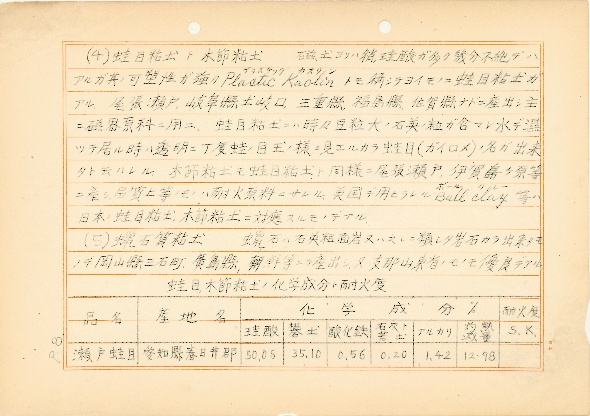 (4) 蛙目粘土ト木節粘土 磁土ヨリハ稍珪酸ガ多ク幾分不純デハ
アルガ其可塑性ガ強ク Plastic Kaolin トモ称シテヨイモノニ蛙目粘土ガ
アル 尾張瀬戸、岐阜縣土岐口、三重縣、福島縣、佐賀縣ナドニ産出シ主
ニ磁器原料ニ用ユ、蛙目粘土ニハ時々豆粒大ノ石英ノ粒ガ含マレ水デ湿
ツテ居ル時ハ透明ニ丁度蛙ノ目玉ノ様ニ見エルカラ蛙目(ガイロメ)ノ名ガ出来
タト云ハレル 木節粘土モ蛙目粘土ト同様ニ尾張瀬戸、伊賀 等
ニ産シ品質上等ノモノハ耐火原料ニサレル、英国デ用ヒラレル Ball clay 等ハ
日本ノ蛙目粘土木節粘土ニ対応スルモノデアル
(5) 蠟石質粘土 蠟石ハ石英粗面岩又ハ之レニ類シタ岩石カラ出来タモ
ノデ岡山縣三石町、廣島縣、朝鮮等ニ産出シ又支那山東省ノモノモ優良デアル
蛙目木節粘土ノ化学成分ト耐火度
品名 産地名 化学成分% 耐火度 S.K.
珪酸 礬土 酸化鉄 石灰ト苦土 アルカリ 灼熱減量
瀬戸蛙目 愛知縣春日井郡 50.05 35.10 0.56 0.20 1.42 12.98